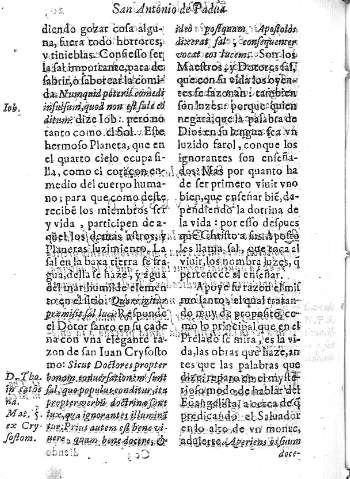 San Antonio de Padua
diendo gozar cosa algu-
na, fuera todo horrores,
y tinieblas. Confiesso ser
la sal importante, para de-
sabrir, ò saborear la comi-
da. Nunquid poterit comedi
Iob.
insulsum, quod non est sale cõ
ditum; dize Iob: pero no
tanto como el Sol. Este
hermoso Planeta, que en
el quarto cielo ocupa si-
lla, como el coraçon en
medio del cuerpo huma-
no; para que como deste
recibe los miembros ser
y vida, participen de a-
quel los demas astros, y
Planetas luzimiento. La
sal en la baxa tierra se fra-
gua, della se haze, y agua
del mar humilde elemen-
to en el sitio. Quare igitur
præmisit sal luci? Responde
el Dotor santo en su cade
na con vna elegante razon
de san Iuan Crysosto
mo: Sicut Doctores propter
D. Tho.
in cate
na.
Mat. 5.
ex Cry
sostom.
bonam conuersationem sunt
sal, quo populus conditur, ita
propter verbis doctrinæ sunt
lux, qua ignorantes illuminã
tur; Prius autem est bene vi-
uere, quam bene docere, &
ideo postquam Apostolos
dixerat sal, consequenter
vocat eos lucem. Son los
Maestros, y Dotores sal,
que con su vida los oyen-
tes se sazonan: tambien
son luzes: porque quien
negará, que la palabra de
Dios en su lengua sea vn
luzido farol, con que los
ignorantes son enseña-
dos? Mas por quanto ha
de ser primero viuir vno
bien, que enseñar bie,
pendiendo la dotrina de
la vida: por esso despues
que Christo a sus Aposto-
les llama sal, que toca al
viuir, los nombra luzes, q̃
pertenece al enseñar.
Apoye su razon el mis
mo santo, el qual tratan-
do muy de proposito, co-
mo lo principal que en el
Prelado se mira, es la vi-
da, las obras que haze, an-
tes que las palabras que
dize, repara en el myste-
rioso modo de hablar del
Euangelista, a cerca de q̃
predicando el Saluador
en lo alto de vn monte,
aduierte. Aperiens os suum
doce-